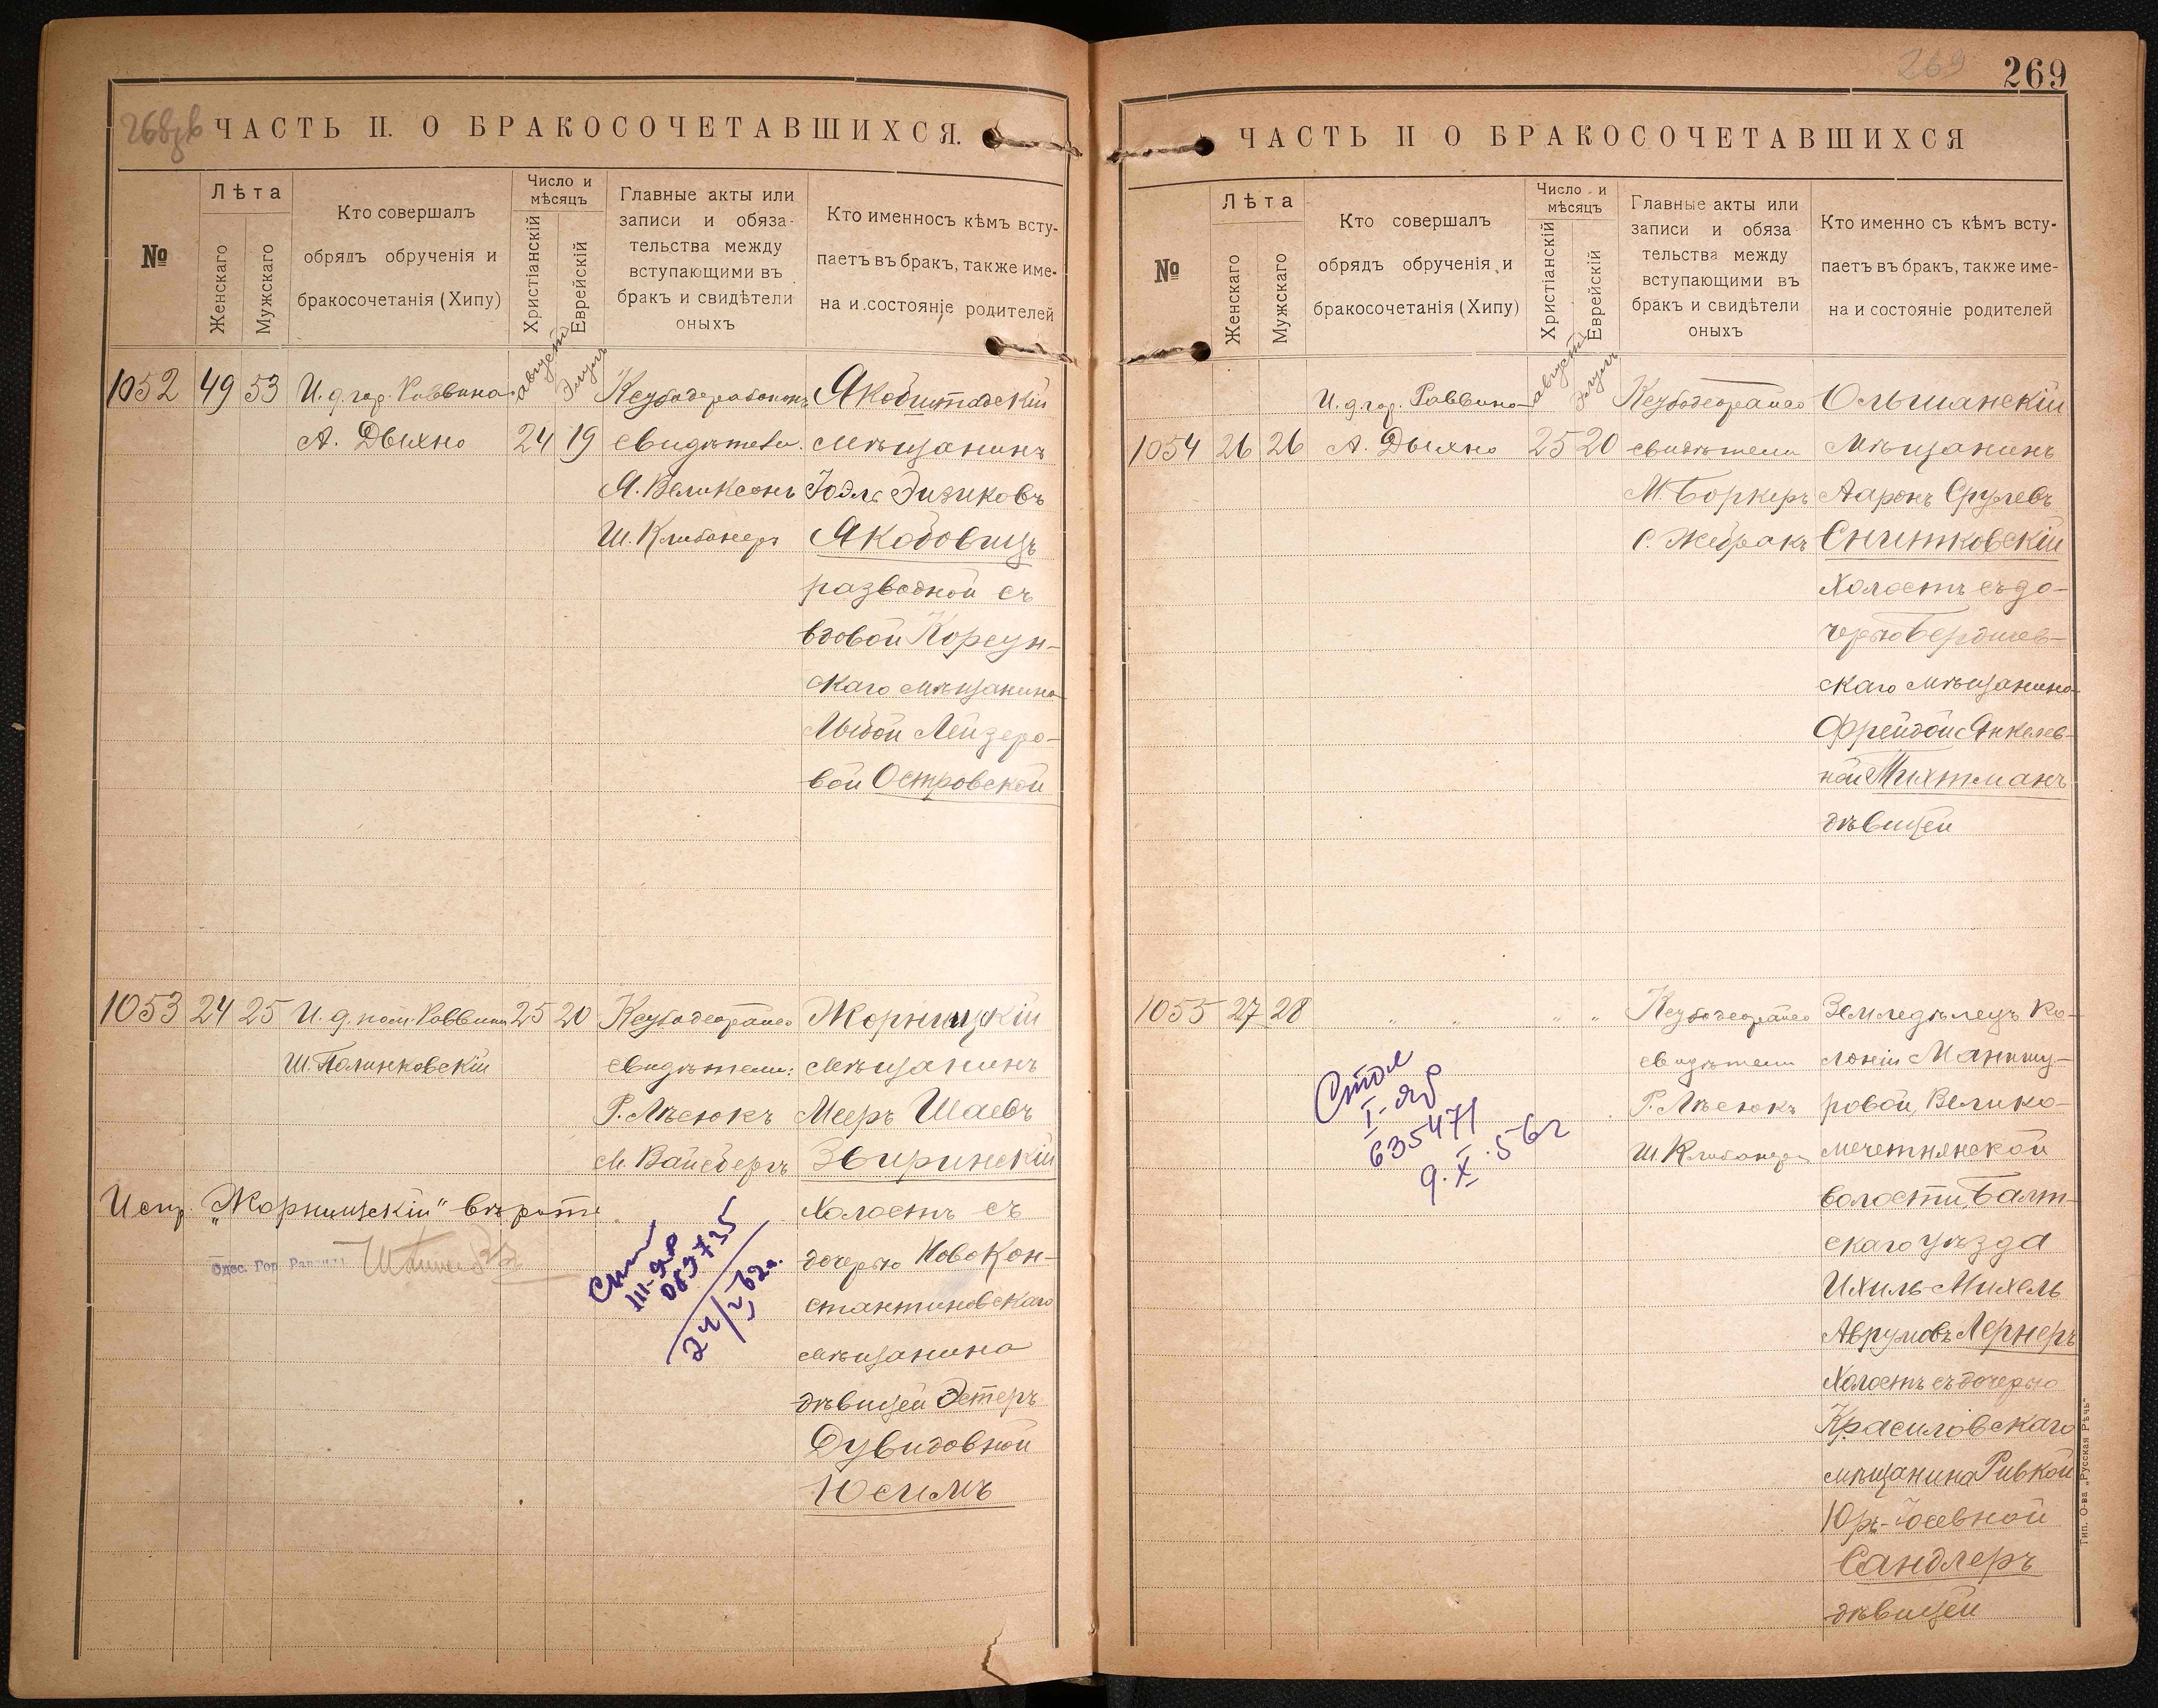 268об
ЧАСТЬ II. О БРАКОСОЧЕТАВШИХСЯ.
№
Лѣта
Женскаго
Мужскаго
Кто совершалъ
обрядъ обрученія и
бракосочетанія (Хипу)
Число и
мѣсяцъ
Христіанскій
Еврейскій
Главные акты или
записи и обяза-
тельства между
вступающими въ
бракъ и свидѣтели
оныхъ
Кто именно съ кѣмъ всту-
паетъ въ бракъ, также име-
на и состояніе родителей
августъ
Элулъ
1052 49 53 И. д. гор. Раввина
А. Дыхно 24 19
свидѣтели
Ш. Клибанеръ
мѣщанинъ
Іодль Эизиковъ
Якобовицъ
разводной съ
вдовой Корсун-
скаго мѣщанина
Лейзеро-
вой Островской
1053 24 25 И. д. пом. Раввина 25 20
Ш. Полинковскій
свидѣтели:
Р. Лѣсюкъ
М. Вайсбергъ
Жорнищскій
мѣщанинъ
Мееръ Шаевъ
Звиринскій
Холостъ съ
дочерью Новокон-
стантиновскаго
мѣщанина
дѣвицей Эстеръ
Дувидовной
Юсимъ
Испр. „Жорнищскій" вѣрить
Одес. Гор. Раввинъ
III-ЯР
089735
24/V 62г.
269
269
ЧАСТЬ II О БРАКОСОЧЕТАВШИХСЯ
№
Лѣта
Женскаго
Мужскаго
Кто совершалъ
обрядъ обрученія и
бракосочетанія (Хипу)
Число и
мѣсяцъ
Христіанскій
Еврейскій
Главные акты или
записи и обяза
тельства между
вступающими въ
бракъ и свидѣтели
оныхъ
Кто именно съ кѣмъ всту-
паетъ въ бракъ, также име-
на и состояніе родителей
августъ
Элулъ
И. д. гор. Раввина
1054 26 26 А. Дыхно 25 20
свидѣтели
М. Боркеръ
С. Жебракъ
Ольшанскій
Мѣщанинъ
Ааронъ Срулевъ
Снитковскій
Холостъ съ до-
черью Бердичев-
скаго мѣщанина
Фрейдой Янкелев-
ной Тихтманъ
дѣвицей
1055 27 28 „ „ „ „
свидѣтели
Р. Лѣсюкъ
Ш. Клибанеръ
Земледѣлецъ ко-
лоніи Манжу-
ровой, Велико-
мечетнянской
волости, Балт-
скаго уѣзда
Ихиль-Михель
Аврумовъ Лернеръ
Холостъ съ дочерью
Красиловскаго
мѣщанина Ривкой
Юръ-Іосевной
Сандлеръ
дѣвицей
I-ЯР
635471
9.X.56г
Тип. О-ва „Русская Рѣчь"